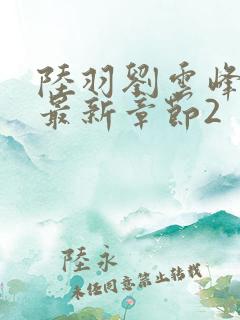 陸羽劉雲峰
最新章節2
陸永
未经同意禁止转载